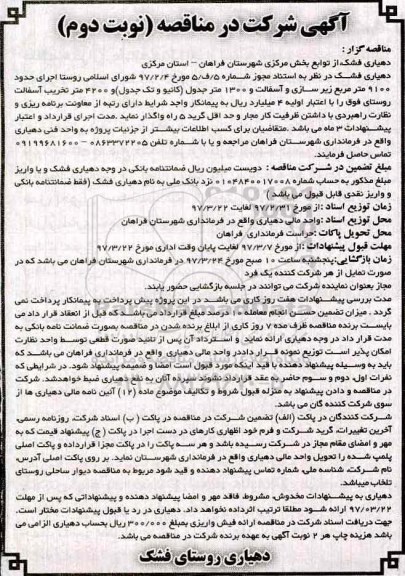 آگهی شرکت در مناقصه (نوبت دوم)
مناقصه گزار :
دهیاری فشک،از توابع بخش مرکزی شهرستان فراهان – استان مرکزی
دهیاری فشک در نظر به استناد مجوز شماره ۵/ف/۵ مورخ ۹۷/۲/۴ شورای اسلامی روستا اجرای حدود
۹۱۰۰ متر مربع زیر سازی و آسفالت و ۱۳۰۰ متر جدول (کانیو و تک جدول)و ۴۲۰۰ متر تخریب آسفالت
روستای فوق را با اعتبار اولیه ۴ میلیارد ریال به پیمانکار واجد شرایط دارای رتبه از معاونت برنامه ریزی و
نظارت راهبردی با داشتن ظرفیت کار مجاز و حد اقل گرید ۵ راه واگذار نماید .مدت اجرای قرارداد و اعتبار
پیشنهادات ۳ ماه می باشد .متقاضیان برای کسب اطلاعات بیشتر از جزئیات پروژه به واحد فنی دهیاری
واقع در فرمانداری شهرستان فراهان مراجعه و یا با شماره تلفن ۰۸۶۳۳۷۲۲۰۵ – ۰۹۱۹۹۶۸۱۶۰۰
تماس حاصل فرمایند.
مبلغ تضمین در شرکت مناقصه : دویست میلیون ریال ضمانتنامه بانکی در وجه دهیاری فشک و یا واریز
مبلغ مذکور به حساب شماره ۰۱۰۴۸۴۰۰۱۷۰۰۸ نزد بانک ملی به نام دهیاری فشک (فقط ضمانتنامه بانکی
و واریز نقدی قابل قبول می باشد )
زمان توزیع اسناد :از مورخ ۹۷/۲/۳۱ لغایت ۹۷/۳/۲۲
محل توزیع اسناد :واحد مالی دهیاری واقع در فرمانداری شهرستان فراهان
محل تحویل پاکات :حراست فرمانداری فراهان
مهلت قبول پیشنهادات :از مورخ ۹۷/۳/۷ لغایت پایان وقت اداری مورخ ۹۷/۳/۲۲
زمان بازگشایی:پنجشنبه ساعت ۱۰ صبح مورخ ۹۷/۳/۲۴ در فرمانداری شهرستان فراهان می باشد که در
صورت تمایل از هر شرکت کننده یک فرد
مجاز بعنوان نماینده شرکت می توانند در جلسه بازگشایی حضور یابند.
مدت بررسی پیشنهادات هفت روز کاری می باشد در این پروژه پیش پرداخت به پیمانکار پرداخت نمی
گردد . میزان تضمین حسن انجام معامله ۱۰ درصد مبلغ قرارداد می باشد که قبل از انعقاد قرار داد می
بایست برنده مناقصه ظرف مده ۷ روز کاری از ابلاغ برنده شدن در مناقصه بصورت ضمانت نامه بانکی به
مدت قرار داد در وجه دهیاری ارائه نماید و استرداد آن پس از تائید صورت قطعی توسط واحد نظارت
امکان پذیر است توزیع نمونه قرار دادادر واحد مالی دهیاری واقع در فرمانداری فراهان می باشد که
باید به وسیله پیشنهاد دهنده با قید اینکه مورد قبول است امضا و ضمیمه پیشنهاد شود. در شرایطی که
نفرات اول، دوم و سوم حاضر به عقد قرارداد نشوند سپرده آنان به نفع دهیاری ضبط خواهدشد. شرکت
در مناقصه و دادن پیشنهاد به منزله قبول شروط و تکالیف موضوع ماده (۱۲) آئین نامه مالی دهیاری ها از
سوی شرکت کننده گان می باشد.
شرکت کنندگان در پاکت (الف) تضمین شرکت در مناقصه در پاکت ( ب) اسناد شرکت، روزنامه رسمی،
آخرین تغییرات، گرید شرکت و فرم خود اظهاری کارهای در دست اجرا در پاکت ( ج) پیشنهاد قیمت که به
مهر و امضای مقام مجاز در شرکت رسیده باشد و هر سه پاکت را در پاکت مجزا قرارداده و پاکت اصلی
پلمپ شده را تحویل واحد مالی دهیاری واقع در فرمانداری شهرستان نماید. بر روی پاکت اصلی آدرس،
نام شرکت، شناسه ملی، شماره تماس پیشنهاد دهنده و قید شود مربوط به مناقصه دیوار ساحلی روستای
تلخاب میباشد.
دهیاری به پیشنهادات مخدوش، مشروط، فاقد مهر و امضا پیشنهاد دهنده و پیشنهاداتی که پس از مهلت
۹۷/۰۳/۲۲ ارائه شود مطلقا ترتیب اثرداده نخواهد داد. دهیاری در رد یا قبول پیشنهادات مختار است.
جهت دریافت اسناد شرکت در مناقصه ارائه فیش واریزی بمبلغ ۳۰۰/۰۰۰ ریال بحساب دهیاری الزامی می
باشد هزینه چاپ هر ۲ نوبت آگهی به عهده برنده شرکت در مناقصه می باشد.
دهیاری روستای فشک